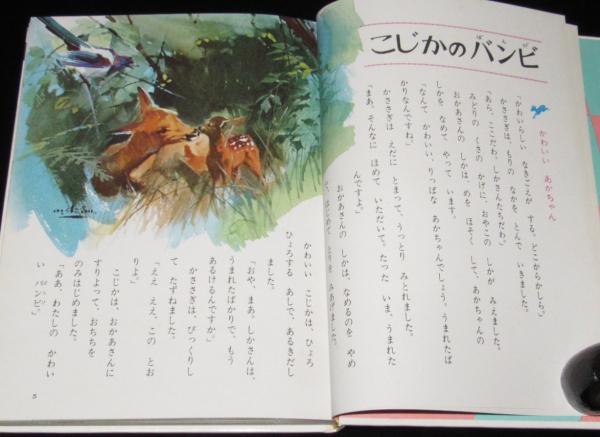 こじかの バンビ
ばんび
かわいい あかちゃん
「かわいらしい なきごえが する。どこからかしら。」
かささぎは、もりの なかを とんで いきました。
「あら、ここだわ。しかさんたちだわ。」
みどりの くさの かげに、おやこの しかが みえました。
おかあさんの しかは、めを ほそく して、あかちゃんの
しかを なめて やって います。
「なんて かわいい、りっぱな あかちゃんでしょう。うまれたば
かりなんですね。」
かささぎは えだに とまって、うっとり みとれました。
「まあ、そんなに ほめて いただいて。たった いま、うまれた
んですよ。」
おかあさんの しかは、なめるのを やめ
て、はじめて とりを みあげました。
かわいい こじかは、ひょろ
ひょろする あしで、あるきだし
ました。
「おや、まあ。しかさんは、
うまれたばかりで、もう
あるけるんですか。」
かささぎは、びっくりし
て たずねました。
「ええ ええ、この とお
りよ。」
こじかは、おかあさんに
すりよって、おちちを
のみはじめました。
「ああ、わたしの かわい
い バンビ。」
5